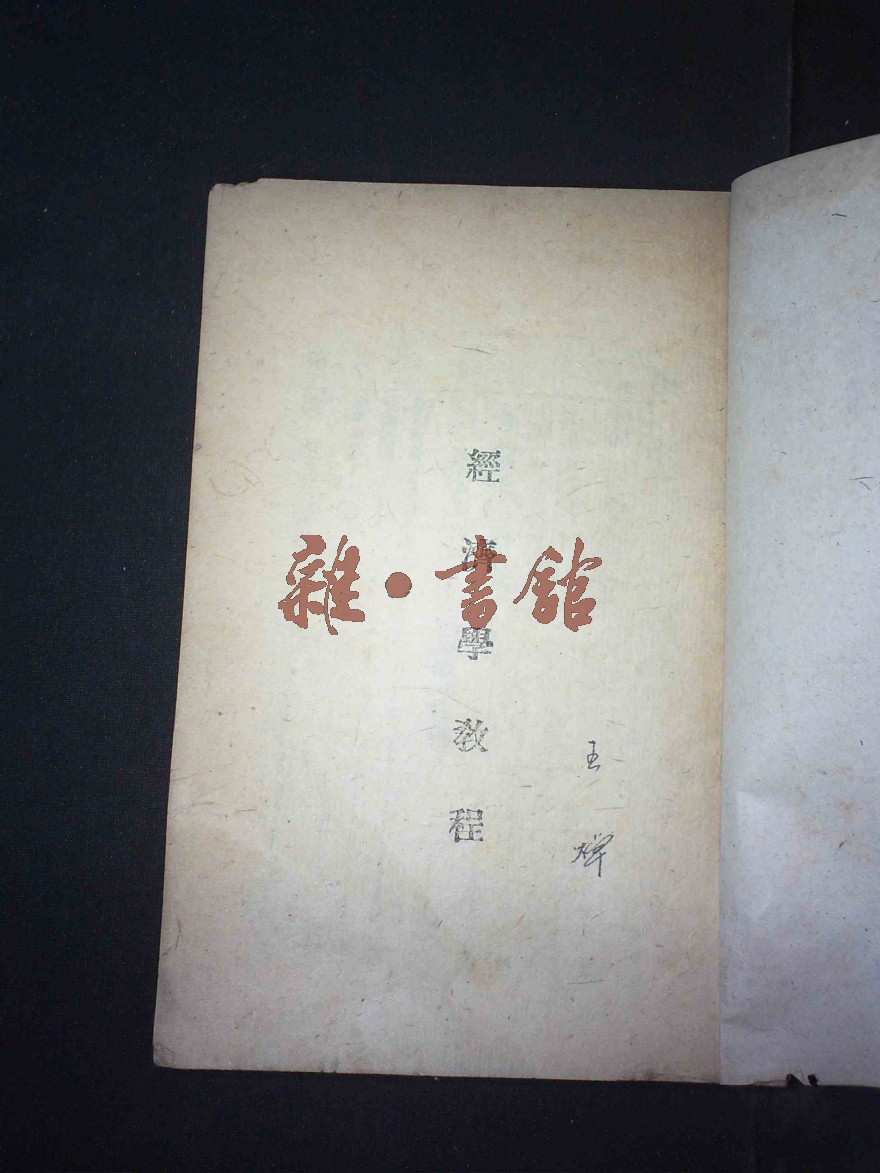 經濟學教程
雜·書館
王輝